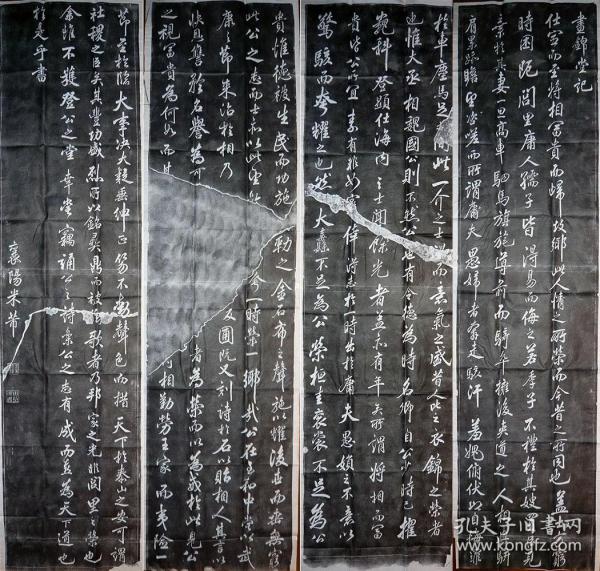 晝錦堂記
仕宦而至将相富貴而歸故鄉此人情之所榮而今昔之所同也蓋士方窮
時困阨閭里庸人孺子皆得易而侮之若季子不禮於其嫂買臣見
棄於其妻一旦高車駟馬旗旄導前而騎卒擁後夾道之人相與駢
肩累跡瞻望咨嗟而所謂庸夫愚婦者奔走駭汗羞媿俯伏以自悔罪
於車塵馬足之間此一介之士得而意氣之盛昔人比之衣錦之榮者
也惟大丞相魏國公則不然公也有令德為時名卿自公少時已擢
高科登顯仕海内之士聞餘光者蓋亦有年矣所謂将相而富
貴皆公所宜素有非如窮僥倖得志於一時出於庸夫愚婦之不意以
驚駭而夸耀之也然大纛不足為公榮桓圭袞裳不足為公
貴惟德被生民而功施勒之金石布之聲施以耀後世而垂無窮
此公之志而士亦以此望於夸一時榮一鄉哉公在至和中嘗以武
康之節来治於相乃圃既又刻詩於石以貽相人其言以
快恩讐矜名譽為可者為榮而以為戒於此見公
之視富貴為何如而其将相勤勞王家而夷險一
節至於臨大事决大疑垂紳正笏不動聲色而措天下於泰山之安可謂
社稷之臣矣其豐功盛烈所以銘彝鼎而被絃歌者乃邦家之光非閭里之榮也
余雖不獲登公之堂幸嘗竊誦公之詩樂公之志有成而喜為天下道也
於是乎書
襄陽米芾
孔夫子舊書網
www.kongfz.com